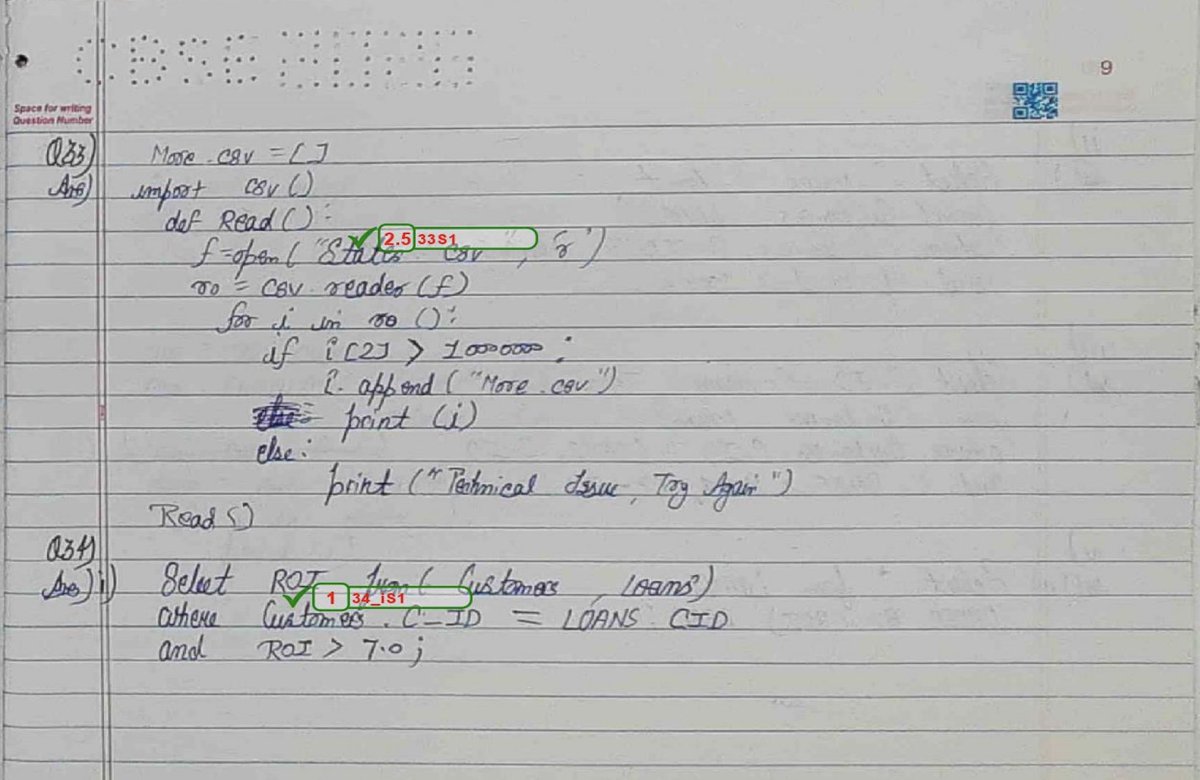 CBSE
9
Space for writing
Question Number
Q33) More.csv = [ ]
Ans) import csv ()
def Read () :
2.5 33S1
f=open( "States csv", 'r')
ro = csv.reader (f)
for i in ro () :
if i [2] > 1000000 :
i. append ( "More.csv")
print (i)
else :
print ("Technical Issue, Try Again")
Read ()
Q34)
Ans) i) Select ROI from ( Customers, Loans)
1 34_iS1
where Customers . C_ID = LOANS. CID
and ROI > 7.0 ;